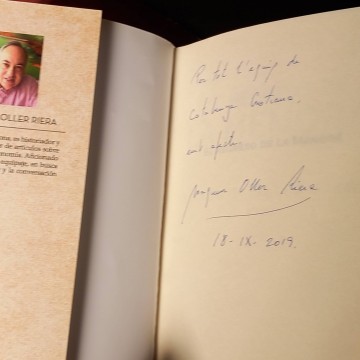 OLLER RIERA
es historiador y
de artículos sobre
nomía. Aficionado
equipaje, en busca
y la conversación
Per tot l'equip de
Catalunya Cristiana,
amb afecte
Oller Riera
18-IX-2019.